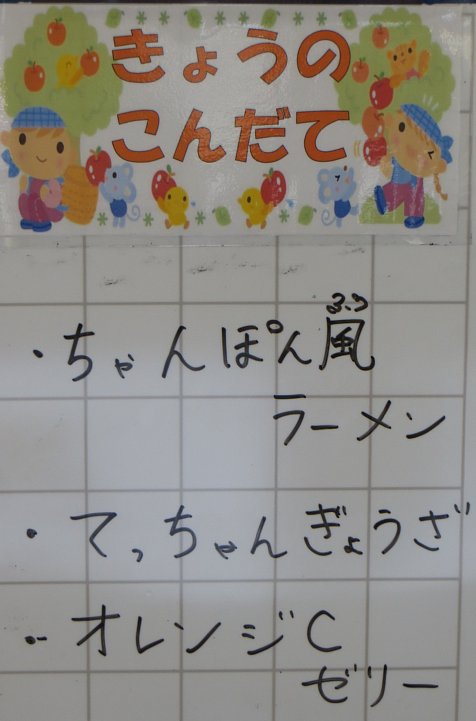 きょうの
こんだて
・ちゃんぽん風
ふう
ラーメン
・てっちゃんぎょうざ
・オレンジC
ゼリー